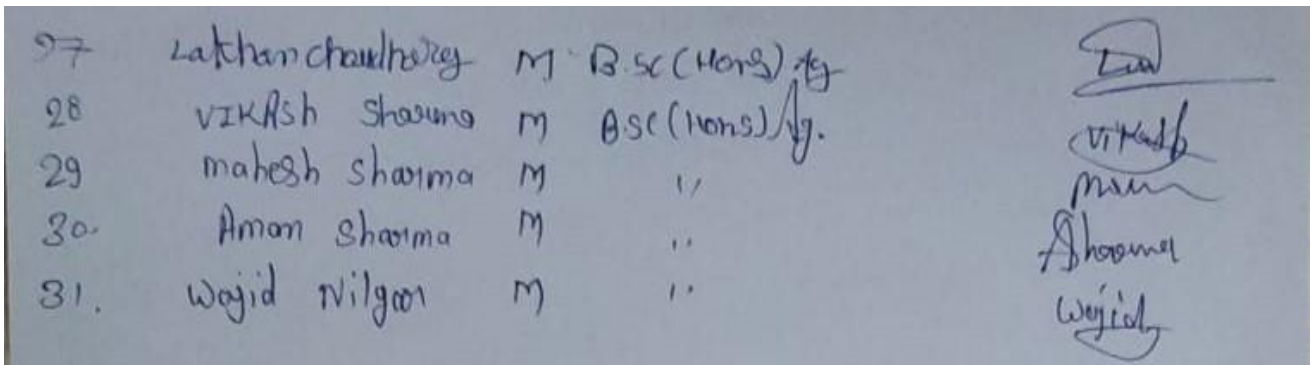 27 Lakhan choudhary M B.Sc (Hons) Ag
28 VIKAsh Sharma M BSC (Hons) Ag. Vikash
29 mahesh sharma M ''
30. Aman Sharma M '' Sharma
31. Wajid Nilgar M '' Wajid